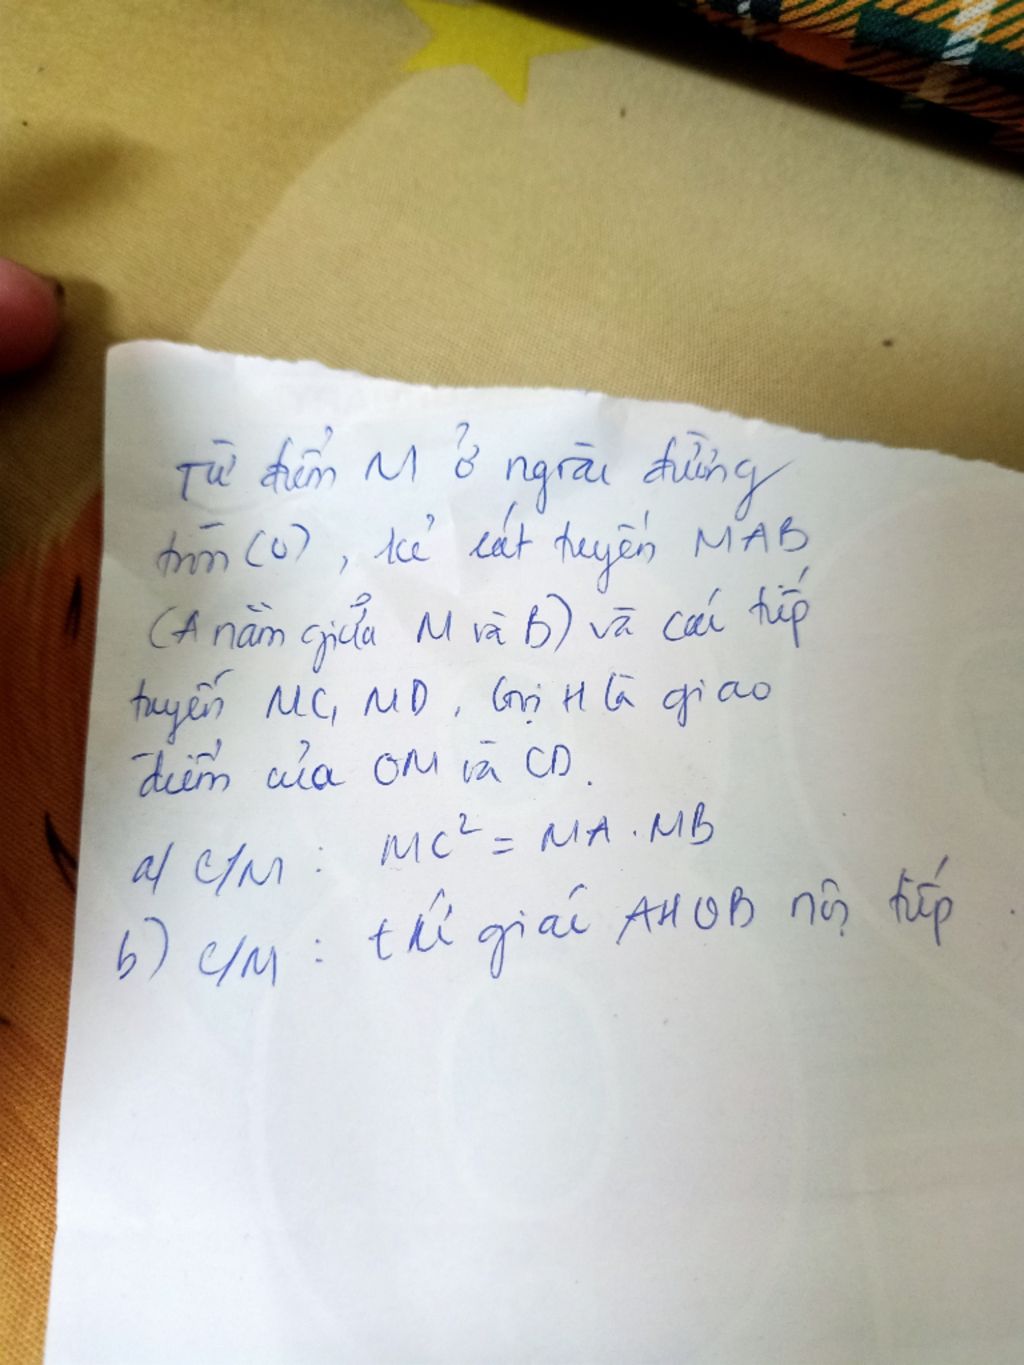 Từ điểm M ở ngoài đường
tròn (O), kẻ cát tuyến MAB
(A nằm giữa M và B) và các tiếp
tuyến MC, MD. Gọi H là giao
điểm của OM và CD.
a/ C/M : MC² = MA . MB
b) C/M : tứ giác AHOB nội tiếp.